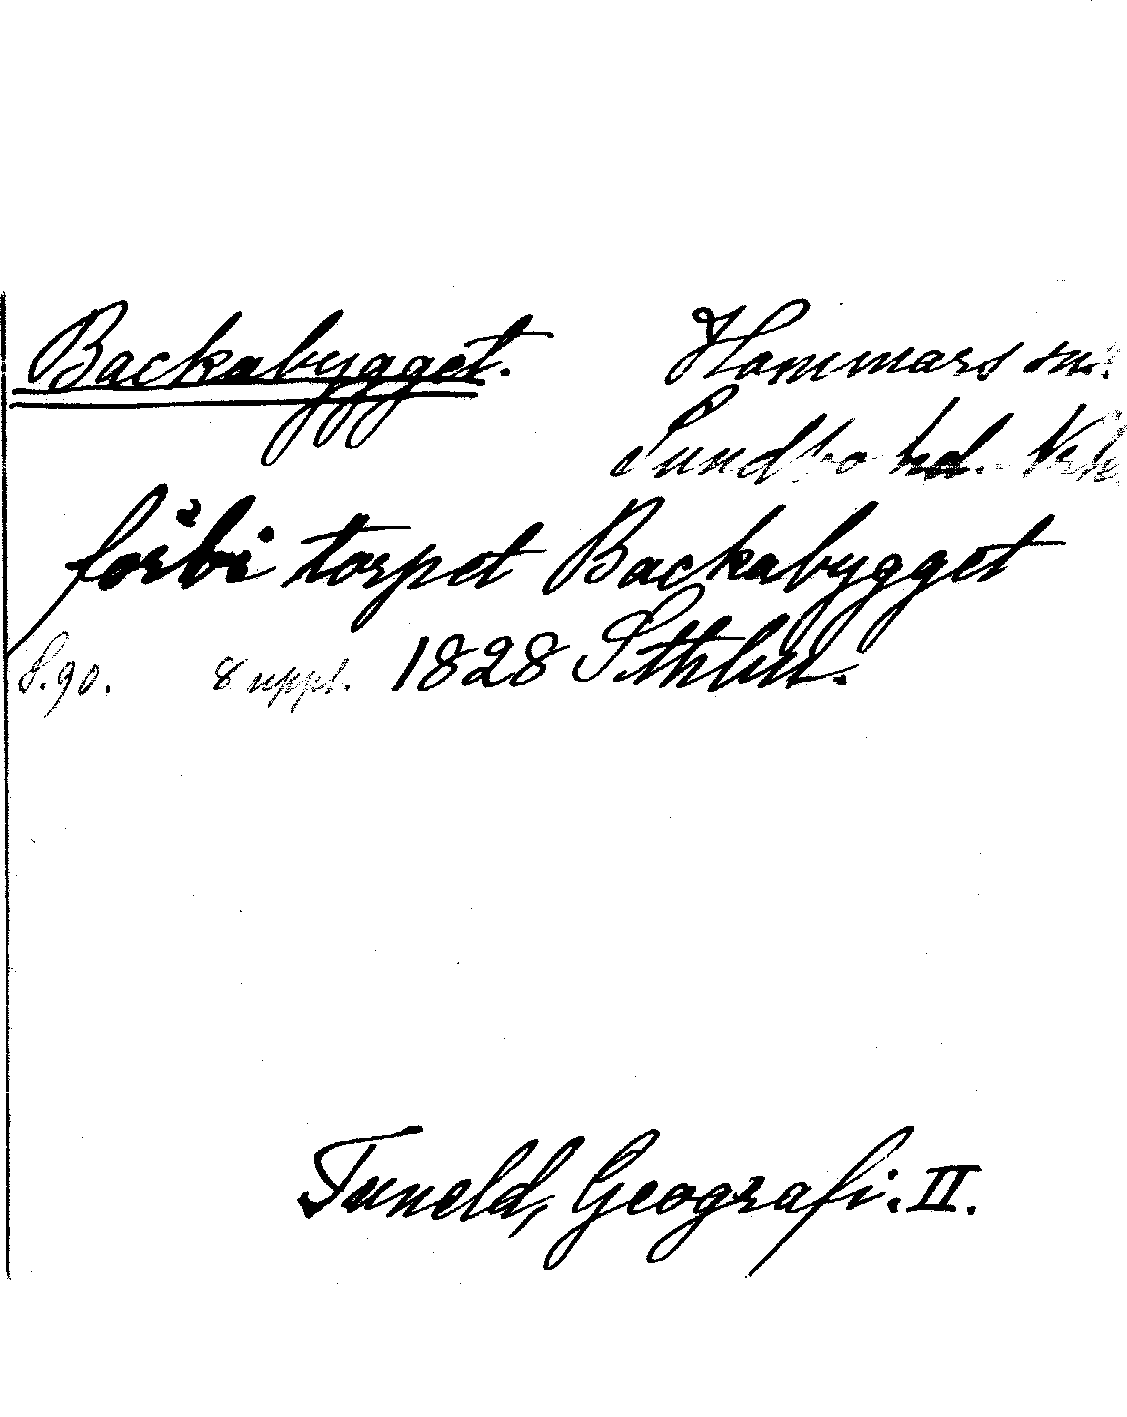 Backabygget. Hammars sn.
Sundbo hd. Nrk
förbi torpet Backabygget
S.90. 8 uppl. 1828 Sthlm.
Tuneld, Geografi. II.